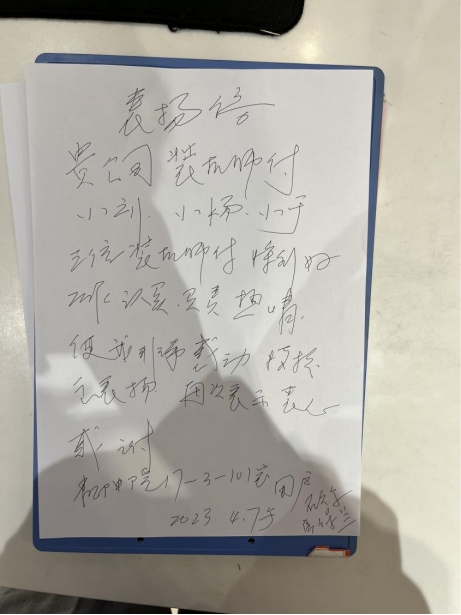 表扬信
贵公司装机师付
小刘.小杨.小于
三位装机师付特别好
认真.负责.热情.
使我非常感动 特提
出表扬 再次表示衷心
感谢
17-3-101室 用户
2023.4.7号